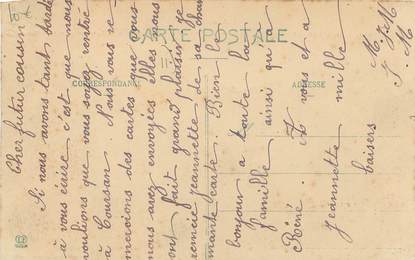 CARTE POSTALE
CORRESPONDANCE
ADRESSE
Cher futur cousin
Si nous avons tant tardé
à vous écrire c'est que nous
voulions que vous soyez rentré
à Coursan. Nous vous re-
mercions des cartes que vous
nous avez envoyées elles nous
ont fait grand plaisir je
remercie Jeannette de sa char
mante carte. Bien le
bonjour a toute la
famille ainsi qu'a
Réné. A vous et a
Jeannette mille
baisers
M. J.M
J. M.